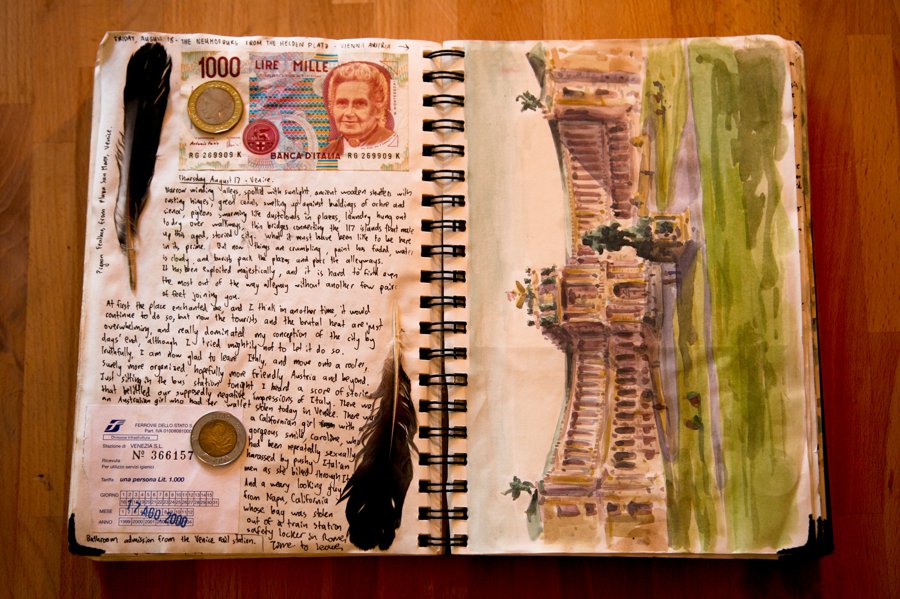 FRIDAY, AUGUST 18 - THE NEUHOFBURG FROM THE HELDEN PLATZ - VIENNA AUSTRIA →
1000 LIRE MILLE
M. MONTESSORI
RG 269909 K
BANCA D'ITALIA
RG 269909 K
Pigeon feathers from Piazza San Marco, Venice.
Thursday August 17 - Venice.
Narrow winding valleys, spotted with sunlight, ancient wooden shutters with
rusting hinges, great canals swelling up against buildings of ochre and
siena, pigeons swarming like dustclouds in plazas, laundry hung out
to dry over walkways, thin bridges connecting the 117 islands that make
up this aged, storied city. What it must have been like to be here
in its prime. But now things are crumbling, paint has faded, water
is cloudy, and tourists pack the plazas and plug the alleyways.
It has been exploited majestically, and it is hard to find even
the most out of the way alleyway without another few pairs
of feet joining you.
At first the place enchanted me, and I think in another time, it would
continue to do so, but now the tourists and the brutal heat are just
overwhelming, and really dominated my conception of the city by
days' end, although I tried mightily not to let it do so.
Truthfully, I am now glad to leave Italy, and move onto a cooler,
surely more organized, hopefully more friendly Austria and beyond.
Just sitting in the bus station tonight I heard a score of stories
that belittled our supposedly negative impressions of Italy. There was
an Australian girl who had her wallet stolen today in Venice. There was
a Californian girl with a
gorgeous smile, Caroline, who
had been repeatedly sexually
harassed by pushy Italian
men as she biked through It.
And a weary looking guy
from Napa, California
whose bag was stolen
out of a train station
safety locker in Rome.
Time to leave.
FS
FERROVIE DELLO STATO S
Part. IVA 01008081000
Divisione Infrastruttura
Stazione di VENEZIA S.L.
Ricevuta N° 366157
Per utilizzo servizi igienici
Tariffa una persona Lit. 1.000
GIORNO
MESE
ANNO 1999 2000 2001
17 AGO 2000
Bathroom admission from the Venice rail station.